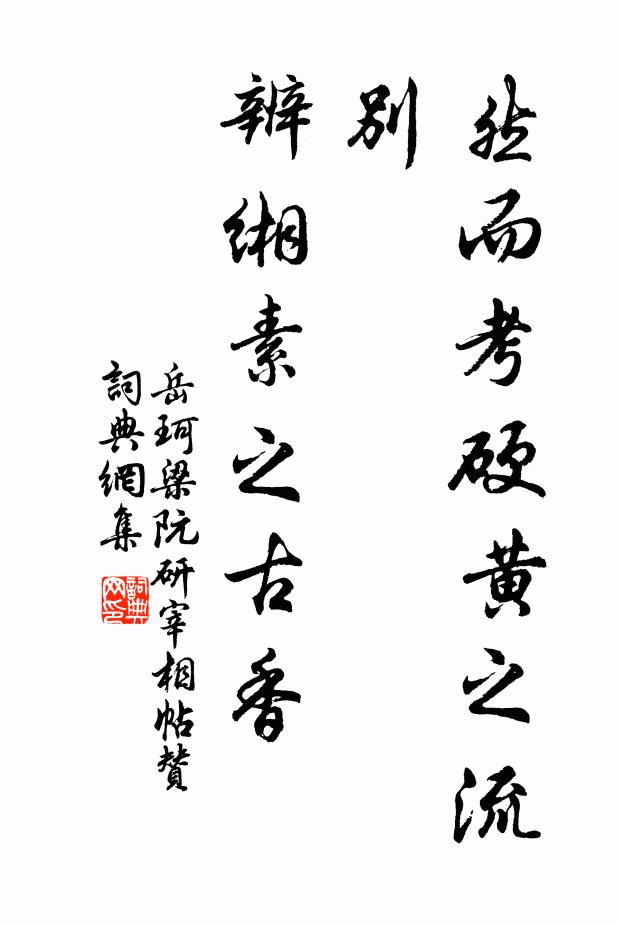 然而考硬黄之流
别
辨缃素之古香
岳珂梁阮研宰相帖贊
詞典網集
詞典网印